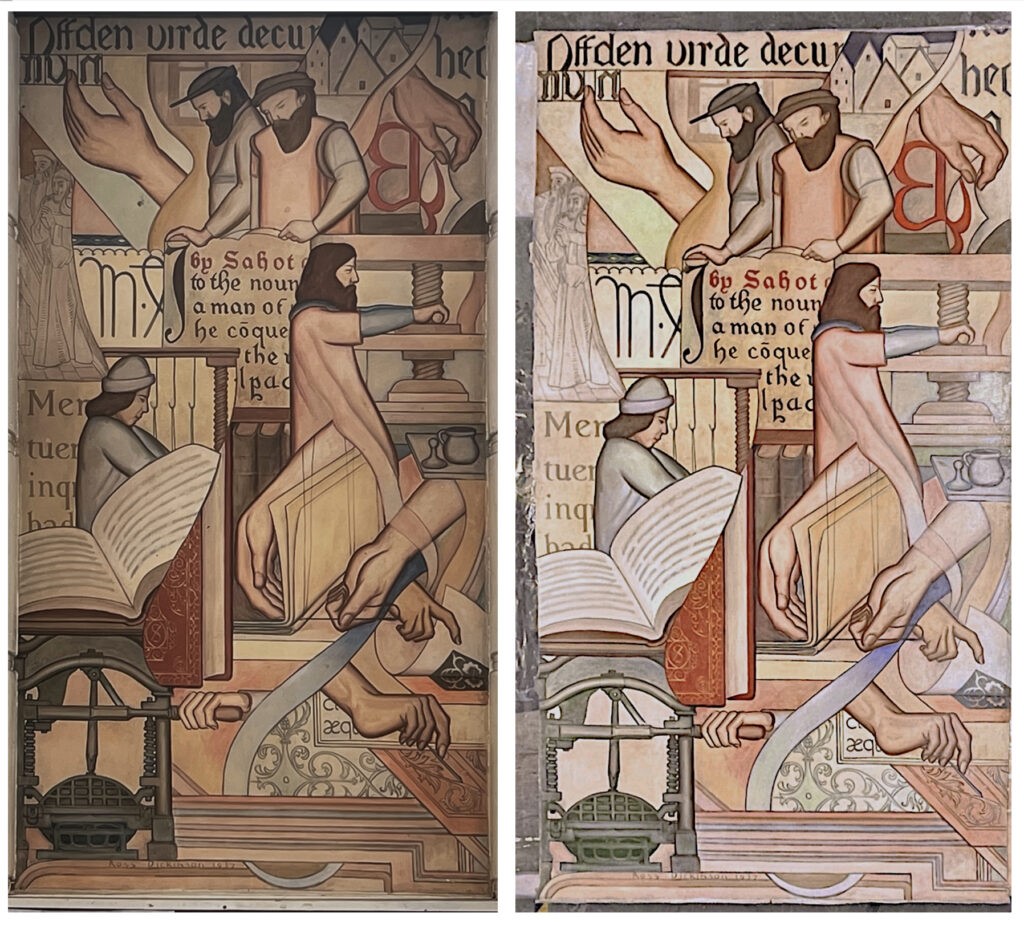 Offden virde decur
hec
by Sahot
to the noun
a man of
he cōque
the
lpac
Mer
tuer
inq
bad
æqu
Ross Dickinson 1937
Offden virde decu
hec
by Sahot
to the noun
a man of
he cōque
the
lpac
Mer
tuer
inq
bad
æqu
Ross Dickinson 1937